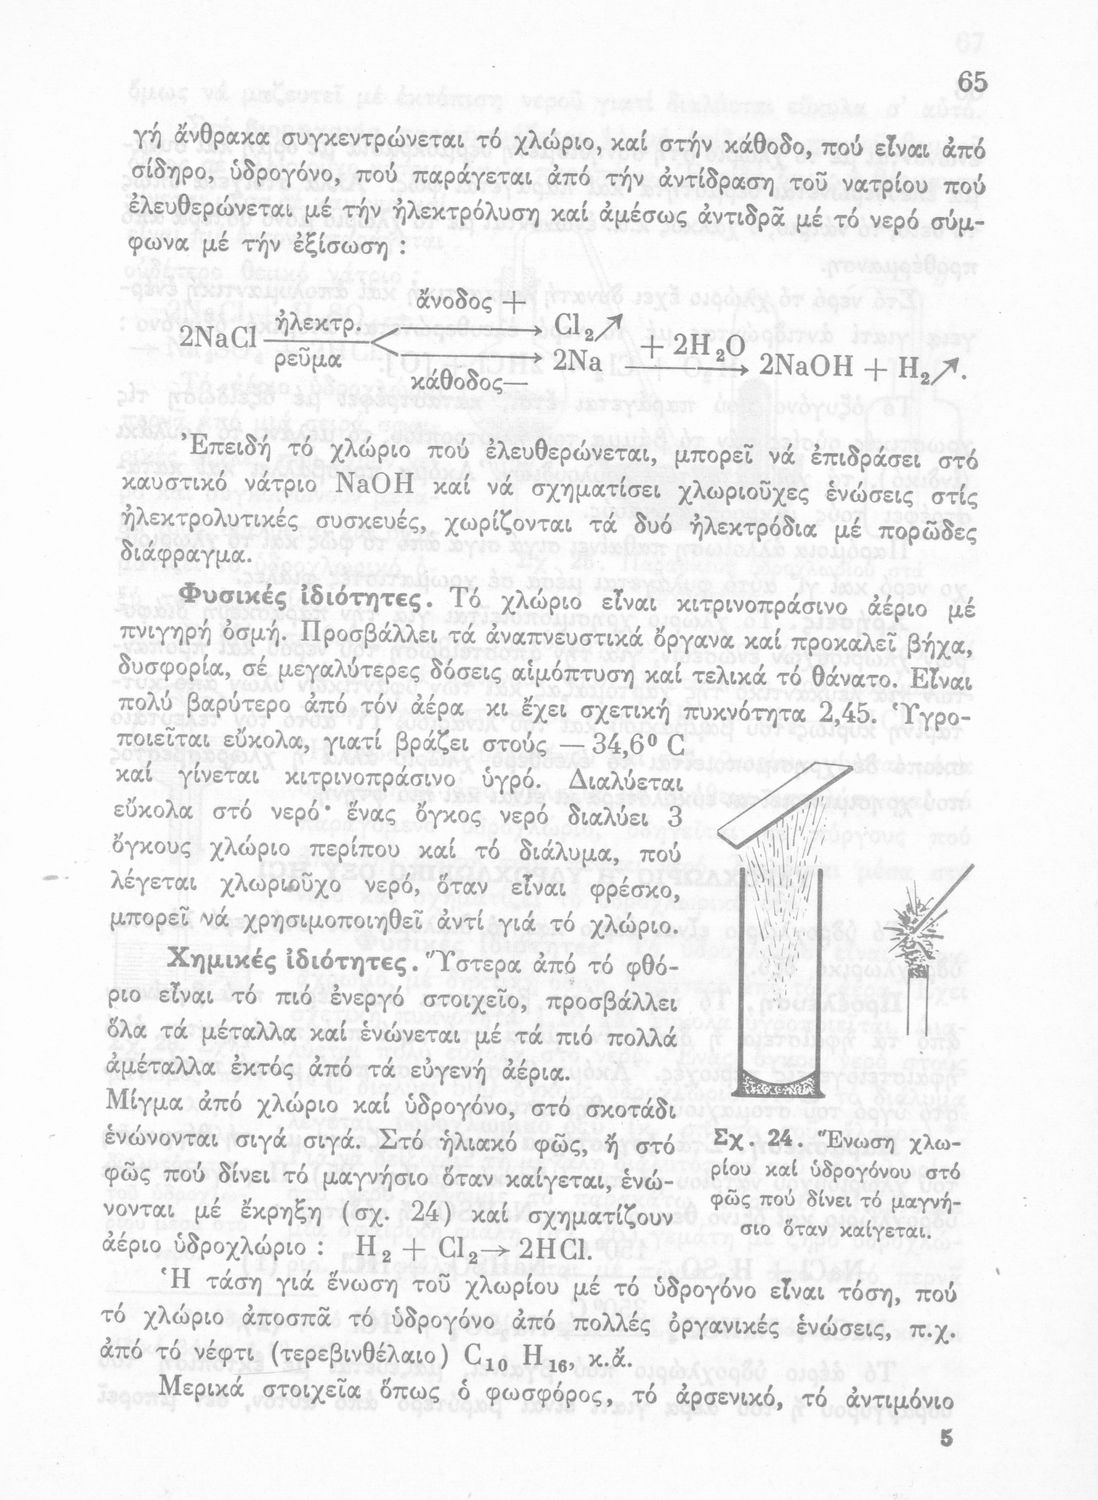 65
γή ἄνθρακα συγκεντρώνεται τό χλώριο, καί στήν κάθοδο, πού εἶναι ἀπό
σίδηρο, ὑδρογόνο, πού παράγεται ἀπό τήν ἀντίδραση τοῦ νατρίου πού
ἐλευθερώνεται μέ τήν ἠλεκτρόλυση καί ἀμέσως ἀντιδρᾶ μέ τό νερό σύμ-
φωνα μέ τήν ἐξίσωση :
ἄνοδος +
2NaCl ἠλεκτρ. ρεῦμα → Cl₂↗
→ 2Na + 2H₂O → 2NaOH + H₂↗.
κάθοδος—
Ἐπειδή τό χλώριο πού ἐλευθερώνεται, μπορεῖ νά ἐπιδράσει στό
καυστικό νάτριο NaOH καί νά σχηματίσει χλωριοῦχες ἑνώσεις στίς
ἠλεκτρολυτικές συσκευές, χωρίζονται τά δυό ἠλεκτρόδια μέ πορῶδες
διάφραγμα.
Φυσικές ἰδιότητες. Τό χλώριο εἶναι κιτρινοπράσινο ἀέριο μέ
πνιγηρή ὀσμή. Προσβάλλει τά ἀναπνευστικά ὄργανα καί προκαλεῖ βήχα,
δυσφορία, σέ μεγαλύτερες δόσεις αἱμόπτυση καί τελικά τό θάνατο. Εἶναι
πολύ βαρύτερο ἀπό τόν ἀέρα κι ἔχει σχετική πυκνότητα 2,45. Ὑγρο-
ποιεῖται εὔκολα, γιατί βράζει στούς — 34,6⁰ C
καί γίνεται κιτρινοπράσινο ὑγρό. Διαλύεται
εὔκολα στό νερό· ἕνας ὄγκος νερό διαλύει 3
ὄγκους χλώριο περίπου καί τό διάλυμα, πού
λέγεται χλωριοῦχο νερό, ὅταν εἶναι φρέσκο,
μπορεῖ νά χρησιμοποιηθεῖ ἀντί γιά τό χλώριο.
Χημικές ἰδιότητες. Ὕστερα ἀπό τό φθό-
ριο εἶναι τό πιό ἐνεργό στοιχεῖο, προσβάλλει
ὅλα τά μέταλλα καί ἑνώνεται μέ τά πιό πολλά
ἀμέταλλα ἐκτός ἀπό τά εὐγενή ἀέρια.
Μίγμα ἀπό χλώριο καί ὑδρογόνο, στό σκοτάδι
ἑνώνονται σιγά σιγά. Στό ἡλιακό φῶς, ἤ στό
φῶς πού δίνει τό μαγνήσιο ὅταν καίγεται, ἑνώ-
νονται μέ ἔκρηξη (σχ. 24) καί σχηματίζουν
ἀέριο ὑδροχλώριο : H₂ + Cl₂→ 2HCl.
Σχ. 24. Ἕνωση χλω-
ρίου καί ὑδρογόνου στό
φῶς πού δίνει τό μαγνή-
σιο ὅταν καίγεται.
Ἡ τάση γιά ἕνωση τοῦ χλωρίου μέ τό ὑδρογόνο εἶναι τόση, πού
τό χλώριο ἀποσπᾶ τό ὑδρογόνο ἀπό πολλές ὀργανικές ἑνώσεις, π.χ.
ἀπό τό νέφτι (τερεβινθέλαιο) C₁₀ H₁₆, κ.ἄ.
Μερικά στοιχεῖα ὅπως ὁ φωσφόρος, τό ἀρσενικό, τό ἀντιμόνιο
5